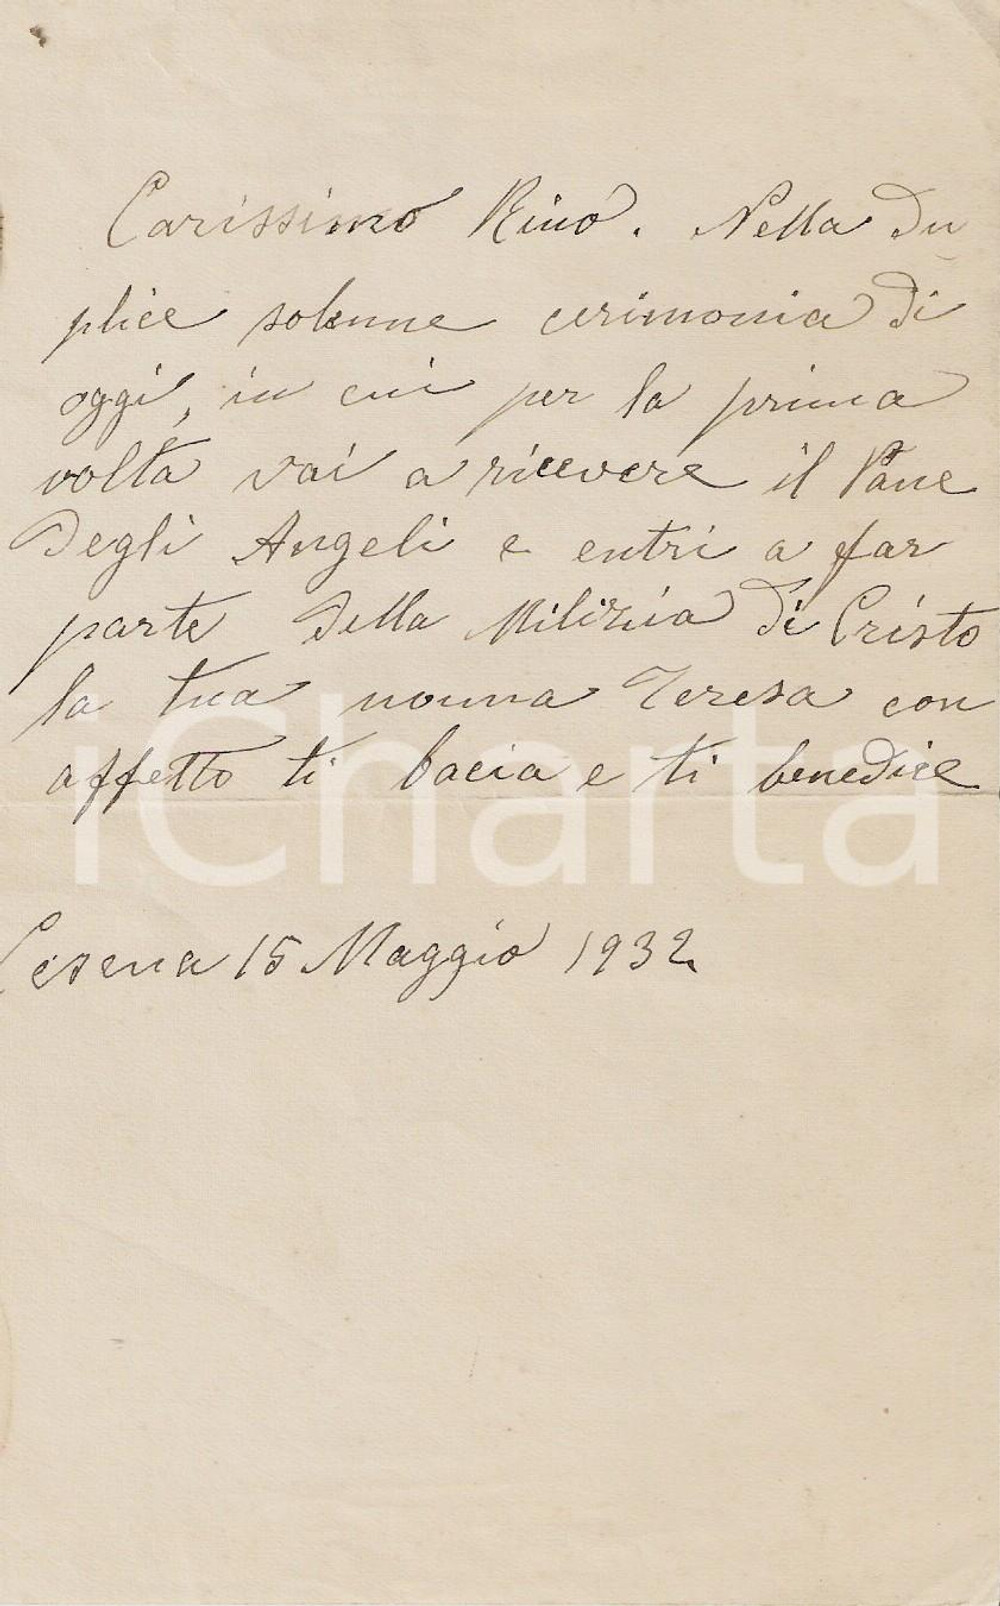 Carissimo Rino. Nella du
plice solenne cerimonia di
oggi, in cui per la prima
volta vai a ricevere il Pane
degli Angeli e entri a far
parte della Milizia di Cristo
la tua nonna Teresa con
affetto ti bacia e ti benedice
iCharta
Cesena 15 Maggio 1932.